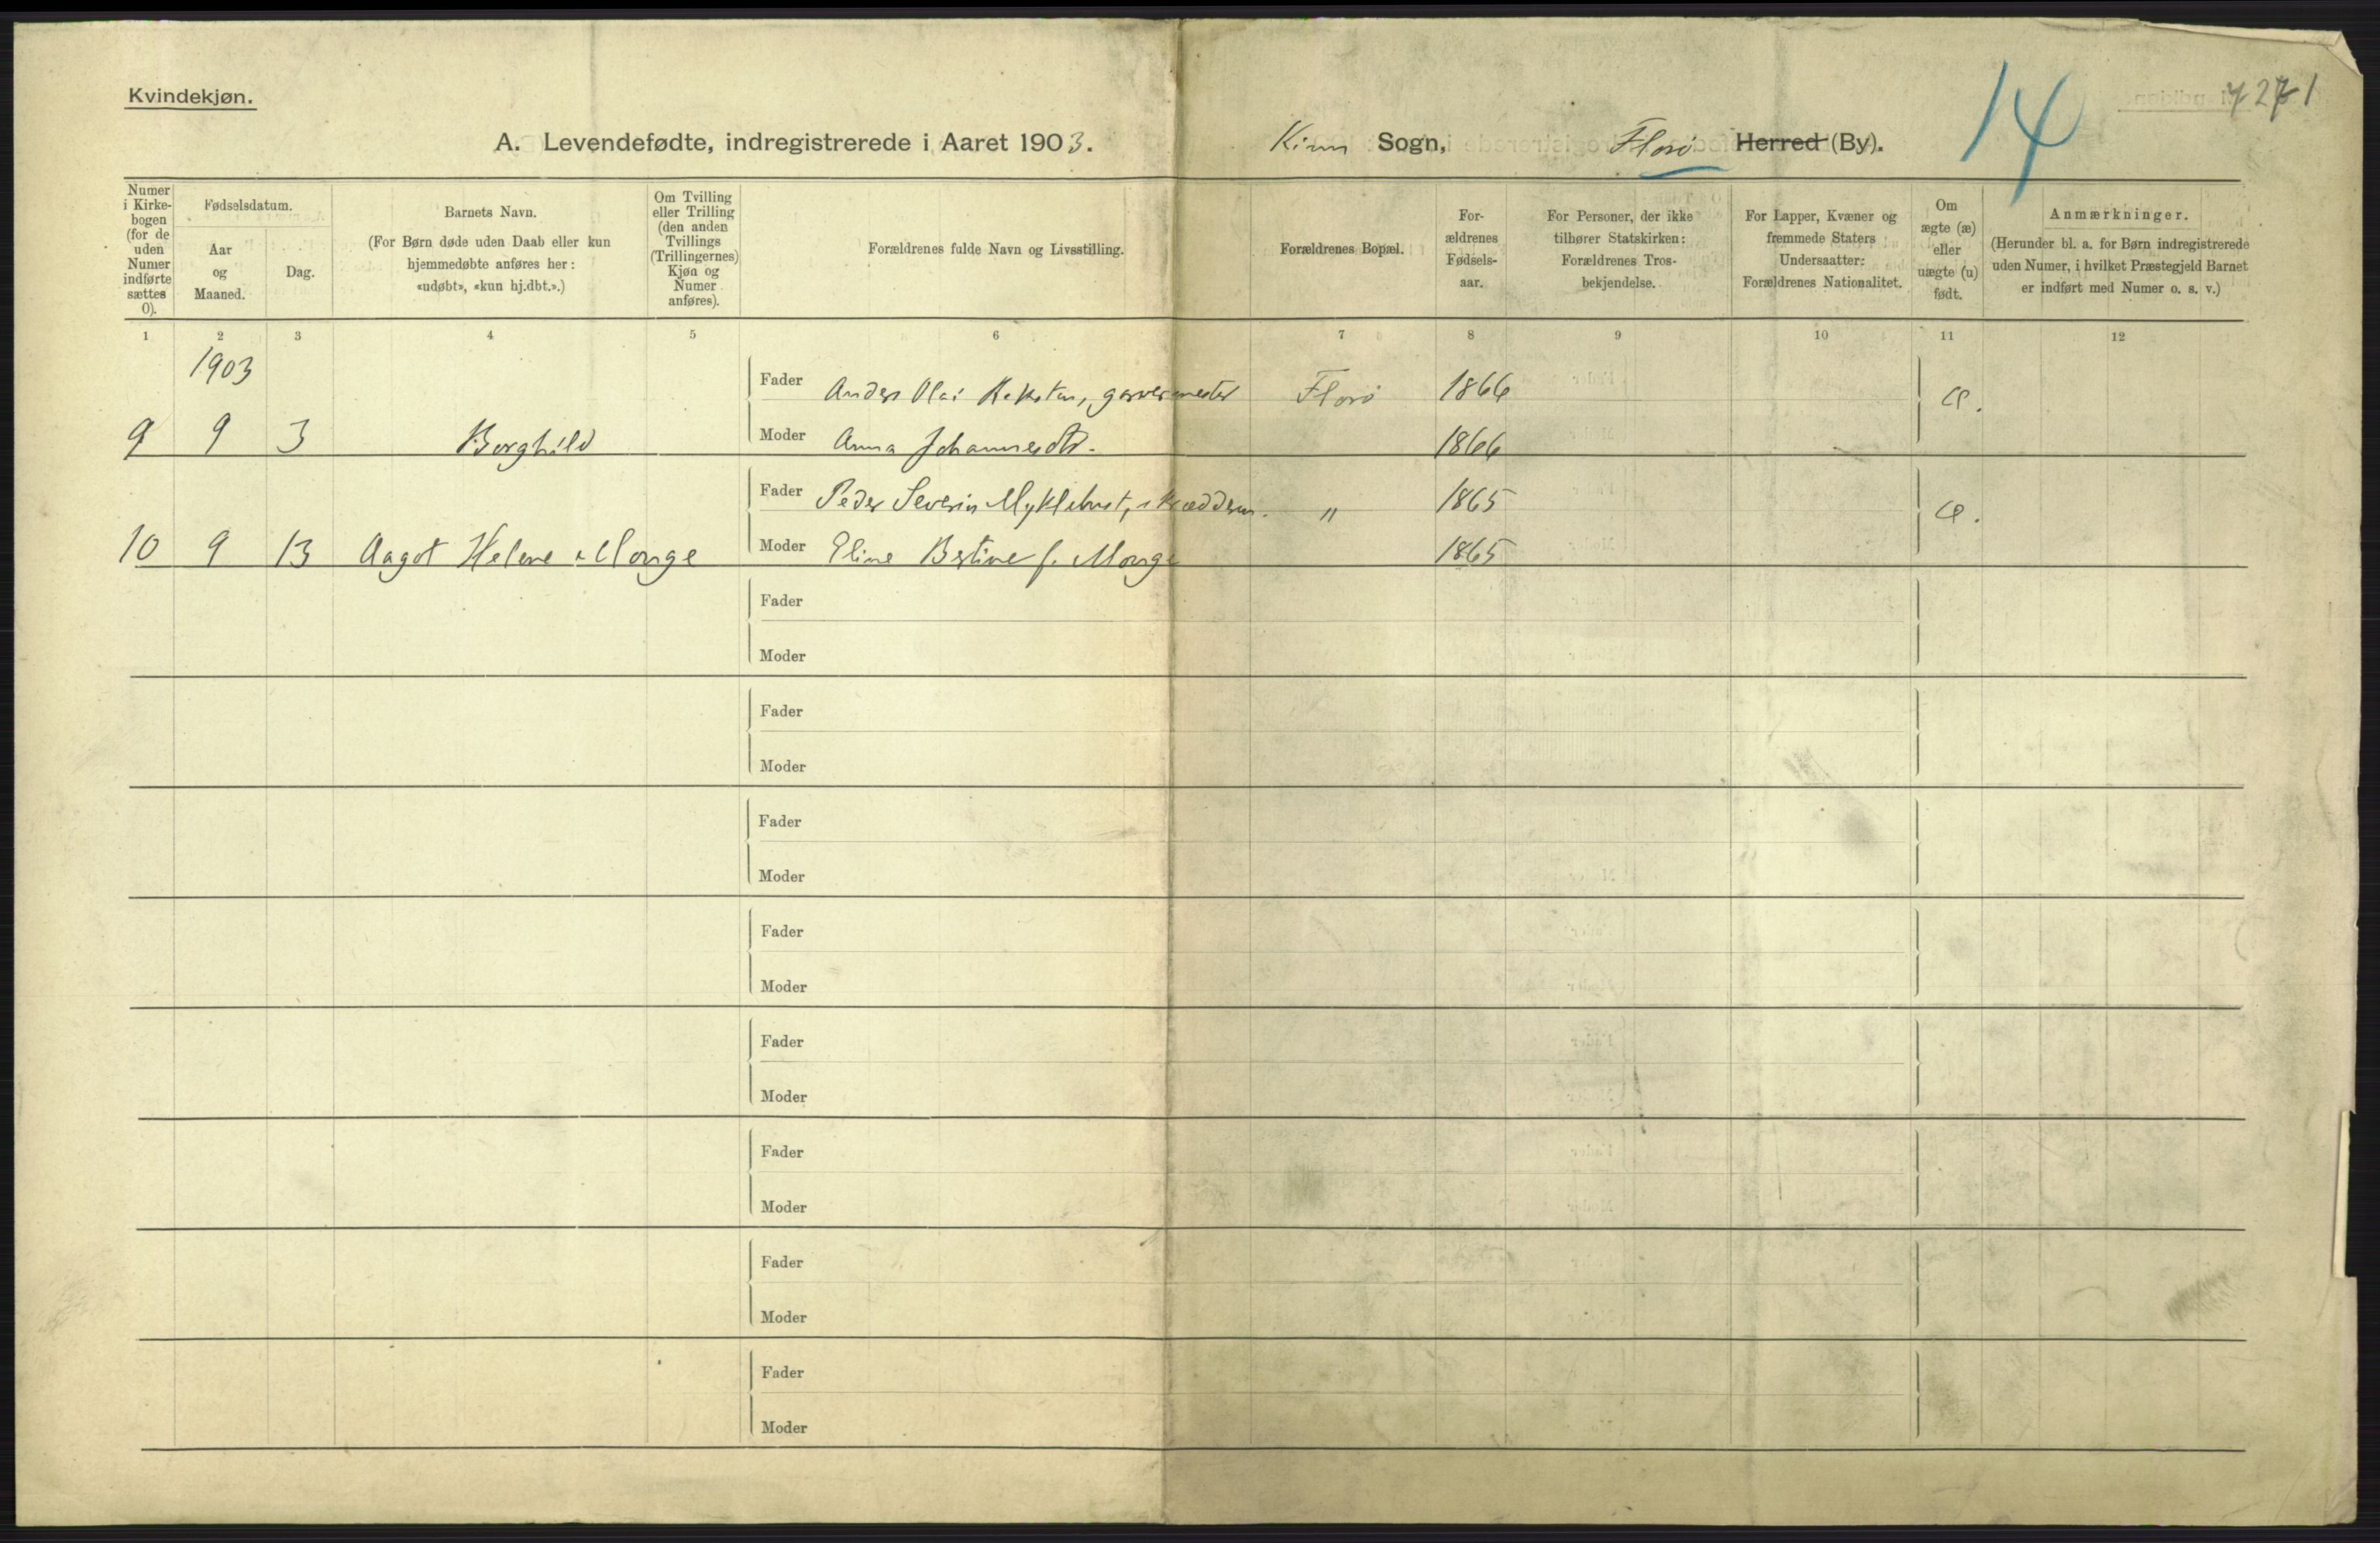 Kvindekjøn.
A. Levendefødte, indregistrerede i Aaret 1903. Kinn Sogn, Florø Herred (By). 14
Numer i Kirke-bogen (for de uden Numer indførte sættes 0).
Fødselsdatum.
Aar og Maaned.
Dag.
Barnets Navn.
(For Børn døde uden Daab eller kun
hjemmedøbte anføres her:
«udøbt», «kun hj.dbt.».)
Om Tvilling
eller Trilling
(den anden
Tvillings
(Trillingernes)
Kjøn og
Numer
anføres).
Forældrenes fulde Navn og Livsstilling.
Forældrenes Bopæl.
For-
ældrenes
Fødsels-
aar.
For Personer, der ikke
tilhører Statskirken:
Forældrenes Tros-
bekjendelse.
For Lapper, Kvæner og
fremmede Staters
Undersaatter:
Forældrenes Nationalitet.
Om
ægte (æ)
eller
uægte (u)
født.
Anmærkninger.
(Herunder bl. a. for Børn indregistrerede
uden Numer, i hvilket Præstegjeld Barnet
er indført med Numer o. s. v.)
1 2 3 4 5 6 7 8 9 10 11 12
1903
Fader Anders Olai garvermester Florø 1866 æ.
9 9 3 Borghild Moder Anna Johannesdtr. 1866
Fader Peder Severin Myklebust, " 1865 æ.
10 9 13 Aagot Helene Monge Moder Eline Bertine f. Monge 1865
Fader
Moder
Fader
Moder
Fader
Moder
Fader
Moder
Fader
Moder
Fader
Moder
Fader
Moder
Fader
Moder